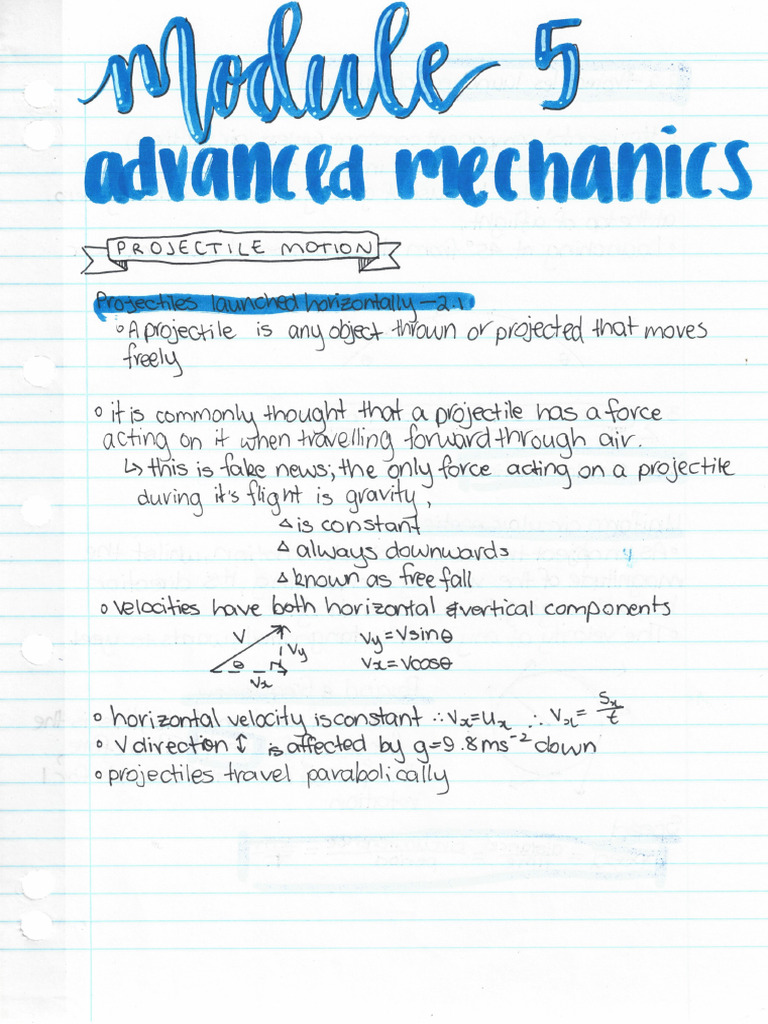 Module 5
advanced mechanics
PROJECTILE MOTION
Projectiles launched horizontally - 2.1
◦ A projectile is any object thrown or projected that moves
freely
◦ it is commonly thought that a projectile has a force
acting on it when travelling forward through air.
↳ this is fake news; the only force acting on a projectile
during it's flight is gravity,
△ is constant
△ always downwards
△ known as free fall
◦ velocities have both horizontal & vertical components
V Vy θ Vx
Vy = Vsinθ
Vx = Vcosθ
◦ horizontal velocity is constant ∴ Vx = Ux ∴ Vx = Sx/t
◦ V direction ↕ is affected by g = 9.8ms⁻² down
◦ projectiles travel parabolically